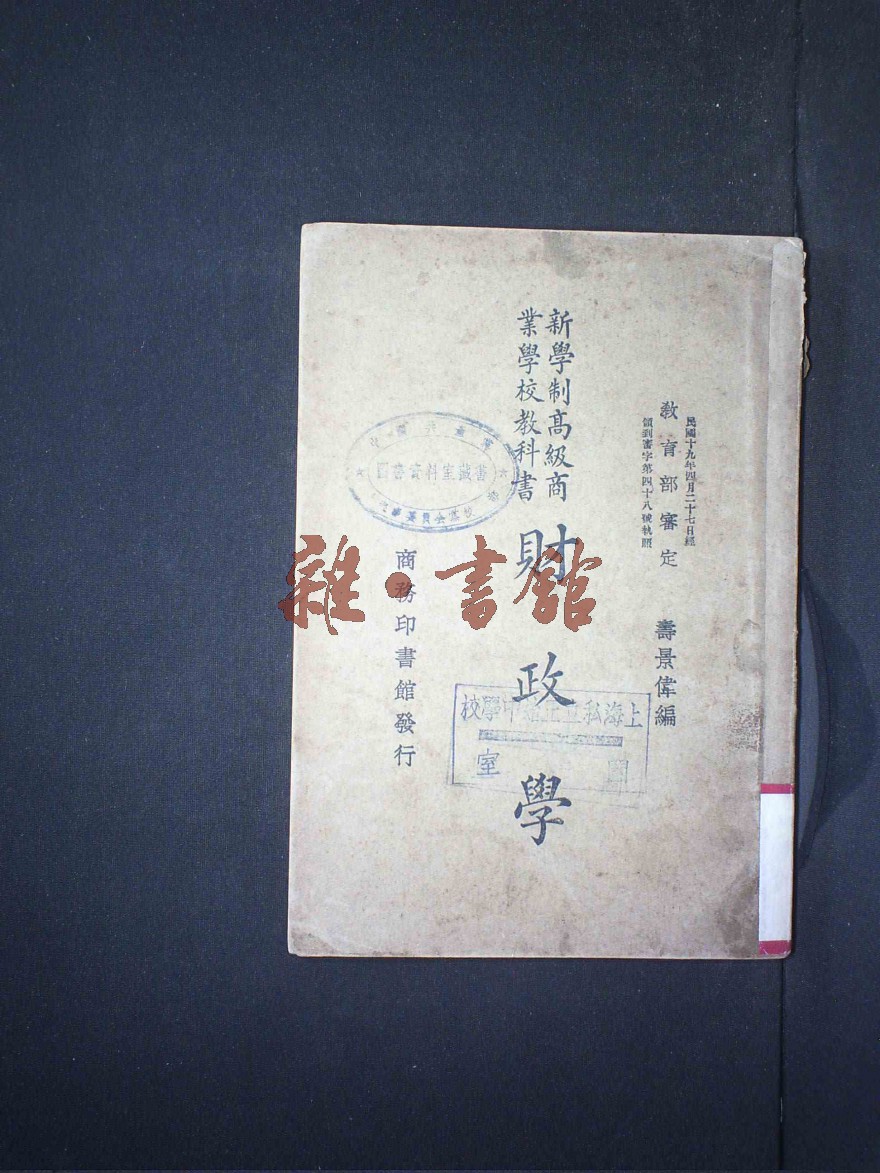 民國十九年四月二十七日經
領到審字第四十八號執照
教育部審定
壽景偉編
新學制高級商
業學校教科書
財政學
商務印書館發行
圖書資料室藏書
上海私立
中學校
室
雜·書館